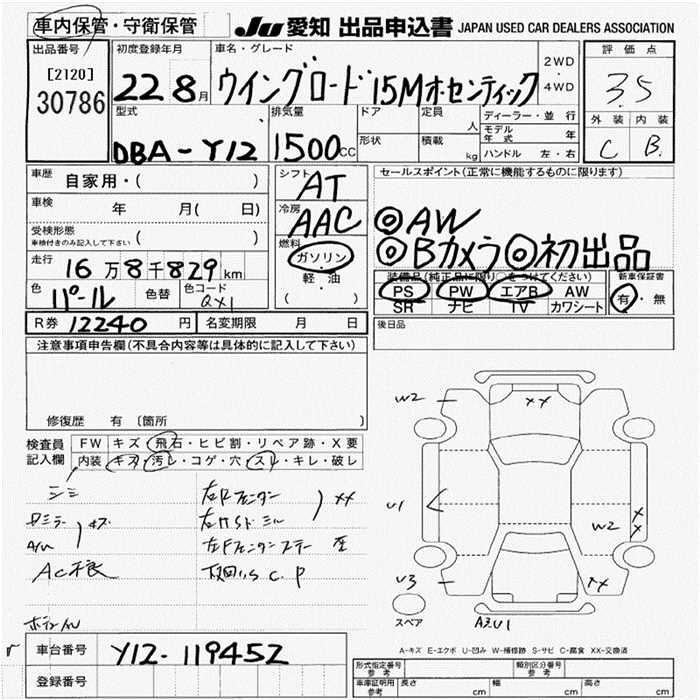 車内保管・守衛保管
JU 愛知 出品申込書 JAPAN USED CAR DEALERS ASSOCIATION
出品番号 初度登録年月 車名・グレード 評価点
[2120] 30786
22 8月 ウイングロード 15Mオーセンティック 2WD・4WD
3.5
外装 内装
C B
型式 排気量 ドア 定員 人 ディーラー・並行
形状 積載 kg モデル年式 年
DBA-Y12 1500CC ハンドル 左・右
車歴 自家用・( )
シフト AT
セールスポイント(正常に機能するものに限ります)
車検 年 月( 日)
冷房 AAC
◎AW
受検形態 ( )
車検付きのみ記入して下さい
燃料 ガソリン・軽油・( )
◎Bカメラ◎初出品
走行 16万8千829km
装備品(純正品に限り○をつけてください) 新車保証書
PS PW エアB AW 有・無
SR ナビ TV カワシート
色 パール 色替 色コード QX1
R券 12240円 名変期限 月 日
後日品
注意事項申告欄(不具合内容等は具体的に記入して下さい)
修復歴 有 〔箇所 〕
検査員記入欄 FW キズ・飛石・ヒビ割・リペア跡・X要
内装 キズ・汚レ・コゲ・穴・スレ・キレ・破レ
シミ
キズ
A/W
AC不良
XX
C.P
W2
XX
U1
X
X
W2
U3
XX
スペア
U1
A-キズ E-エクボ U-凹み W-補修跡 S-サビ C-腐食 XX-交換済
車台番号 Y12-119452
登録番号
形式指定番号 参考 類別区分番号 参考
車庫証明用 参考 長さ cm 幅 cm 高さ cm